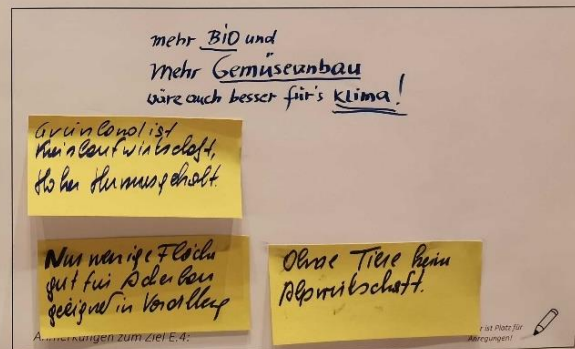 mehr BIO und
mehr Gemüseanbau
wäre auch besser für's Klima!
Grünland ist
Kreislaufwirtschaft,
Hoher Humusgehalt.
Nur wenige Fläche
gut für Ackerbau
geeignet in Vorarlberg
Ohne Tiere keine
Alpwirtschaft.
Anmerkungen zum Ziel E.4:
r ist Platz für
Anregungen!